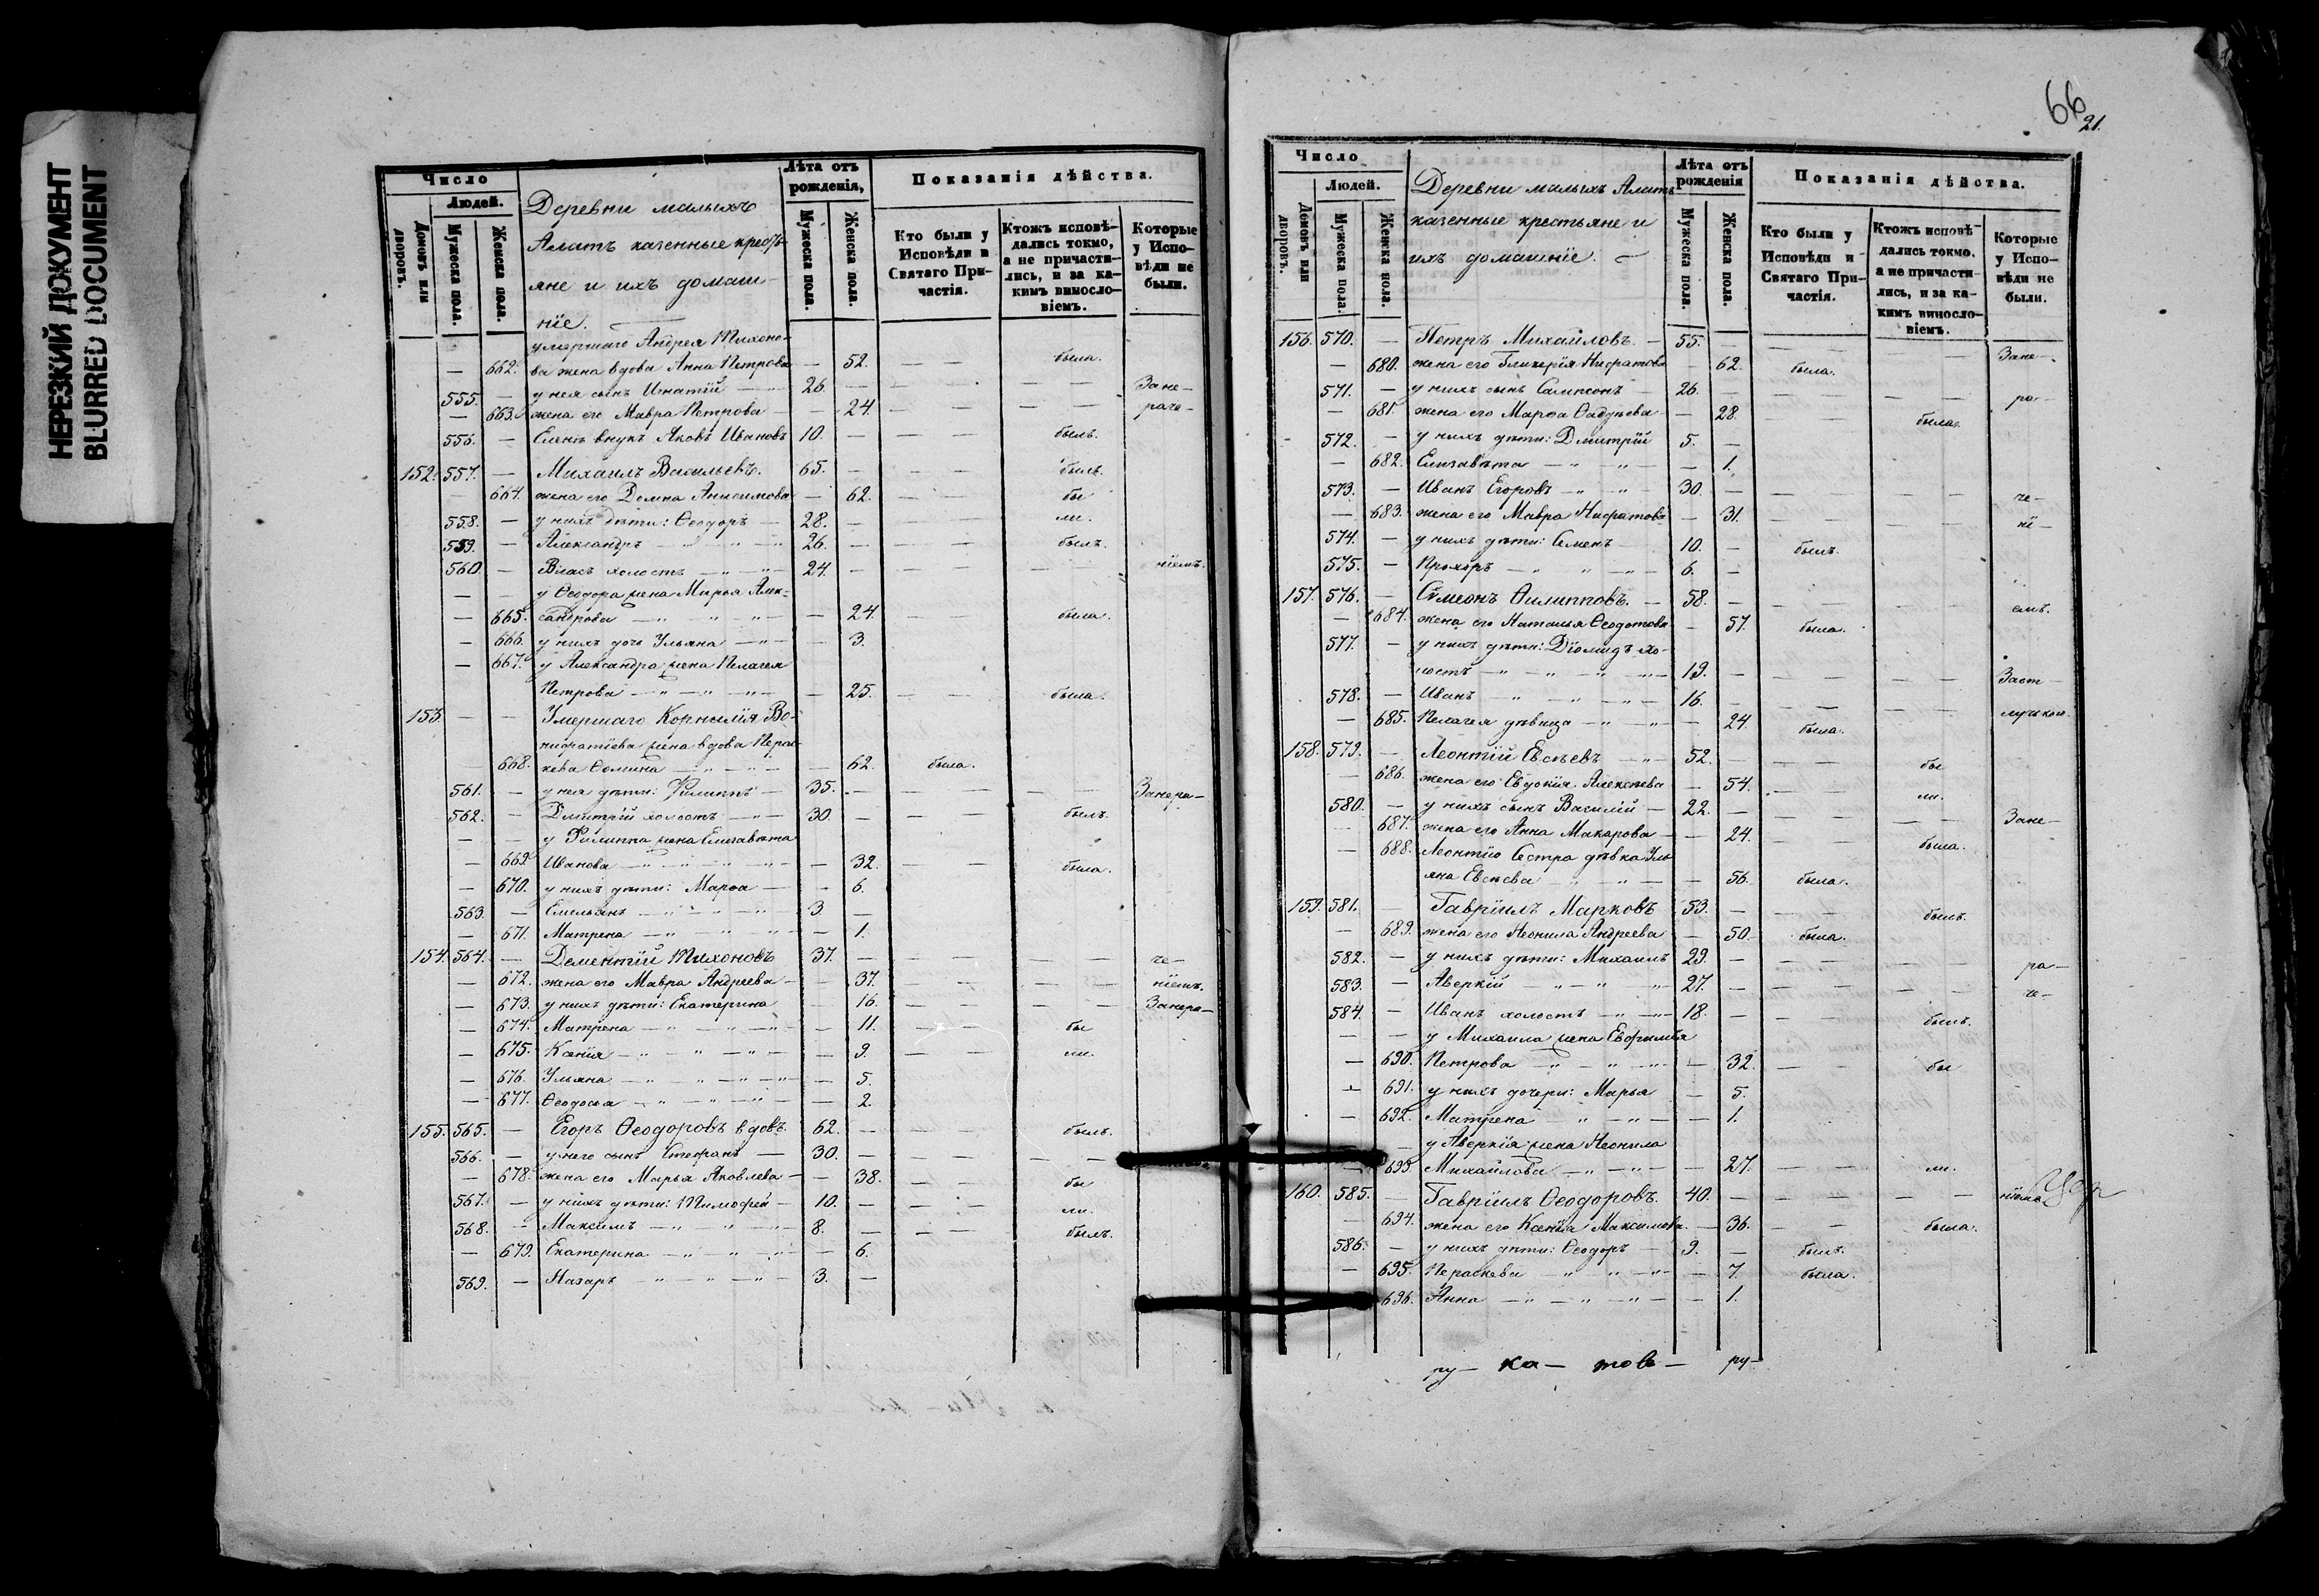 НЕРЕЗКИЙ ДОКУМЕНТ
BLURRED DOCUMENT
Число
Людей.
Домовъ или дворовъ.
Мужеска пола.
Женска пола.
Деревни малыхъ
Алатъ казенные кресть-
яне и ихъ домаш-
ніе.
Лѣта отъ рожденія,
Мужеска пола.
Женска пола.
Показанія дѣйства.
Кто были у Исповѣди и Святаго При-частія.
Ктожъ исповѣ-дались токмо, а не причасти-лись, и за ка-кимъ винословіемъ.
Которые у Испо-вѣди не были.
умершаго Андрея Тихоно-
— 662. ва жена вдова Анна Петрова — 52. была.
555. — у нея сынъ Игнатій — 26. — Зане-
— 663. жена его Мавра Петрова — 24. — раче-
556. — Еленѣ внукъ Яковъ Ивановъ 10. — былъ.
152. 557. — Михаилъ Васильевъ. 65. — былъ.
— 664. жена его Домна Анисимова — 62. — бы
558. — у нихъ дѣти: Ѳеодоръ — 28. — ли.
559. — Александръ — 26. — былъ.
560. — Власъ холостъ — 24. — ніемъ.
— — у Ѳеодора жена Марья Алек-
— 665. сандрова — 24. была.
— 666. у нихъ дочь Ульяна — 3.
— 667. у Александра жена Пелагея
Петрова — 25. — была.
153. — — Умершаго Корнилія Во-
нифатіева жена вдова Парас-
668. кева Ѳомина — 62. была.
561. — у нея дѣти: Филиппъ — 35. — Занера-
562. — Дмитрій холостъ — 30. — былъ.
— — у Филиппа жена Елизавѣта
— 669. Иванова — 32. — была.
— 670. у нихъ дѣти: Марѳа — 6.
563. — Емельянъ — 3. —
— 671. Матрена — 1.
154. 564. — Дементій Тихоновъ 37. — че-
— 672. жена его Мавра Андреева — 37. — ніемъ.
— 673. у нихъ дѣти: Екатерина — 16. — Занера-
— 674. Матрена — 11. — бы
— 675. Ксенія — 9. — ли.
— 676. Ульяна — 5.
— 677. Ѳеодосья — 2.
155. 565. — Егоръ Ѳеодоровъ вдовъ. 62. — былъ.
566. — у него сынъ Стефанъ — 30. —
— 678. жена его Марья Яковлева — 38. — бы
567. — у нихъ дѣти: Тимофей — 10. — ли.
568. — Максимъ — 8. — былъ.
— 679. Екатерина — 6.
569. — Назаръ — 3. —
66
21.
Число
Людей.
Домовъ или дворовъ.
Мужеска пола.
Женска пола.
Деревни малыхъ Алатъ
казенные крестьяне и
ихъ домашніе.
Лѣта отъ рожденія
Мужеска пола.
Женска пола.
Показанія дѣйства.
Кто были у Исповѣди и Святаго При-частія.
Ктожъ исповѣ-дались токмо, а не причасти-лись, и за ка-кимъ винословіемъ.
Которые у Испо-вѣди не были.
156. 570. — Петръ Михайловъ. — 55. — Зане-
— 680. жена его Гликерія Нифатова — 62. была.
571. — у нихъ сынъ Сампсонъ 26. — ра-
— 681. жена его Марѳа Ѳадѣева — 28. была.
572. — у нихъ дѣти: Дмитрій 5. —
— 682. Елизавѣта — 1.
573. — Иванъ Егоровъ — 30. — че-
— 683. жена его Мавра Нифатова — 31. — ні-
574. — у нихъ дѣти: Семенъ 10. — былъ.
575. — Прохоръ — 6. —
157. 576. — Сѵмеонъ Ѳилипповъ. — 58. — емъ.
— 684. жена его Наталья Ѳеодотова — 57. была.
577. — у нихъ дѣти: Діомидъ хо-
лостъ — 19. — Заот-
578. — Иванъ — 16. — лучкою.
— 685. Пелагея дѣвица — 24. была.
158. 579. — Леонтій Евсѣевъ — 52. — бы
— 686. жена его Евдокія Алексѣева — 54. — ли.
580. — у нихъ сынъ Василій — 22. — Зане-
— 687. жена его Анна Макарова — 24. была.
— 688. Леонтію сестра дѣвка Уль-
яна Евсѣева — 56. была.
159. 581. — Гавріилъ Марковъ 53. — былъ.
— 689. жена его Неонила Андреева — 50. была.
582. — у нихъ дѣти: Михаилъ 29. — ра-
583. — Аверкій — 27. — че-
584. — Иванъ холостъ — 18. — былъ.
— — у Михаила жена Евфимія
— 690. Петрова — 32. — бы
— 691. у нихъ дочери: Марья — 5.
— 692. Матрена — 1.
— у Аверкія жена Неонила
693. Михайлова — 27. — ли.
160. 585. — Гавріилъ Ѳеодоровъ. 40. — ніемъ
— 694. жена его Ксенія Максимова — 36. — была.
586. — у нихъ дѣти: Ѳеодоръ — 9. — былъ.
— 695. Параскева — 7. была.
696. Анна — 1.
ру- ка- товъ- ру-